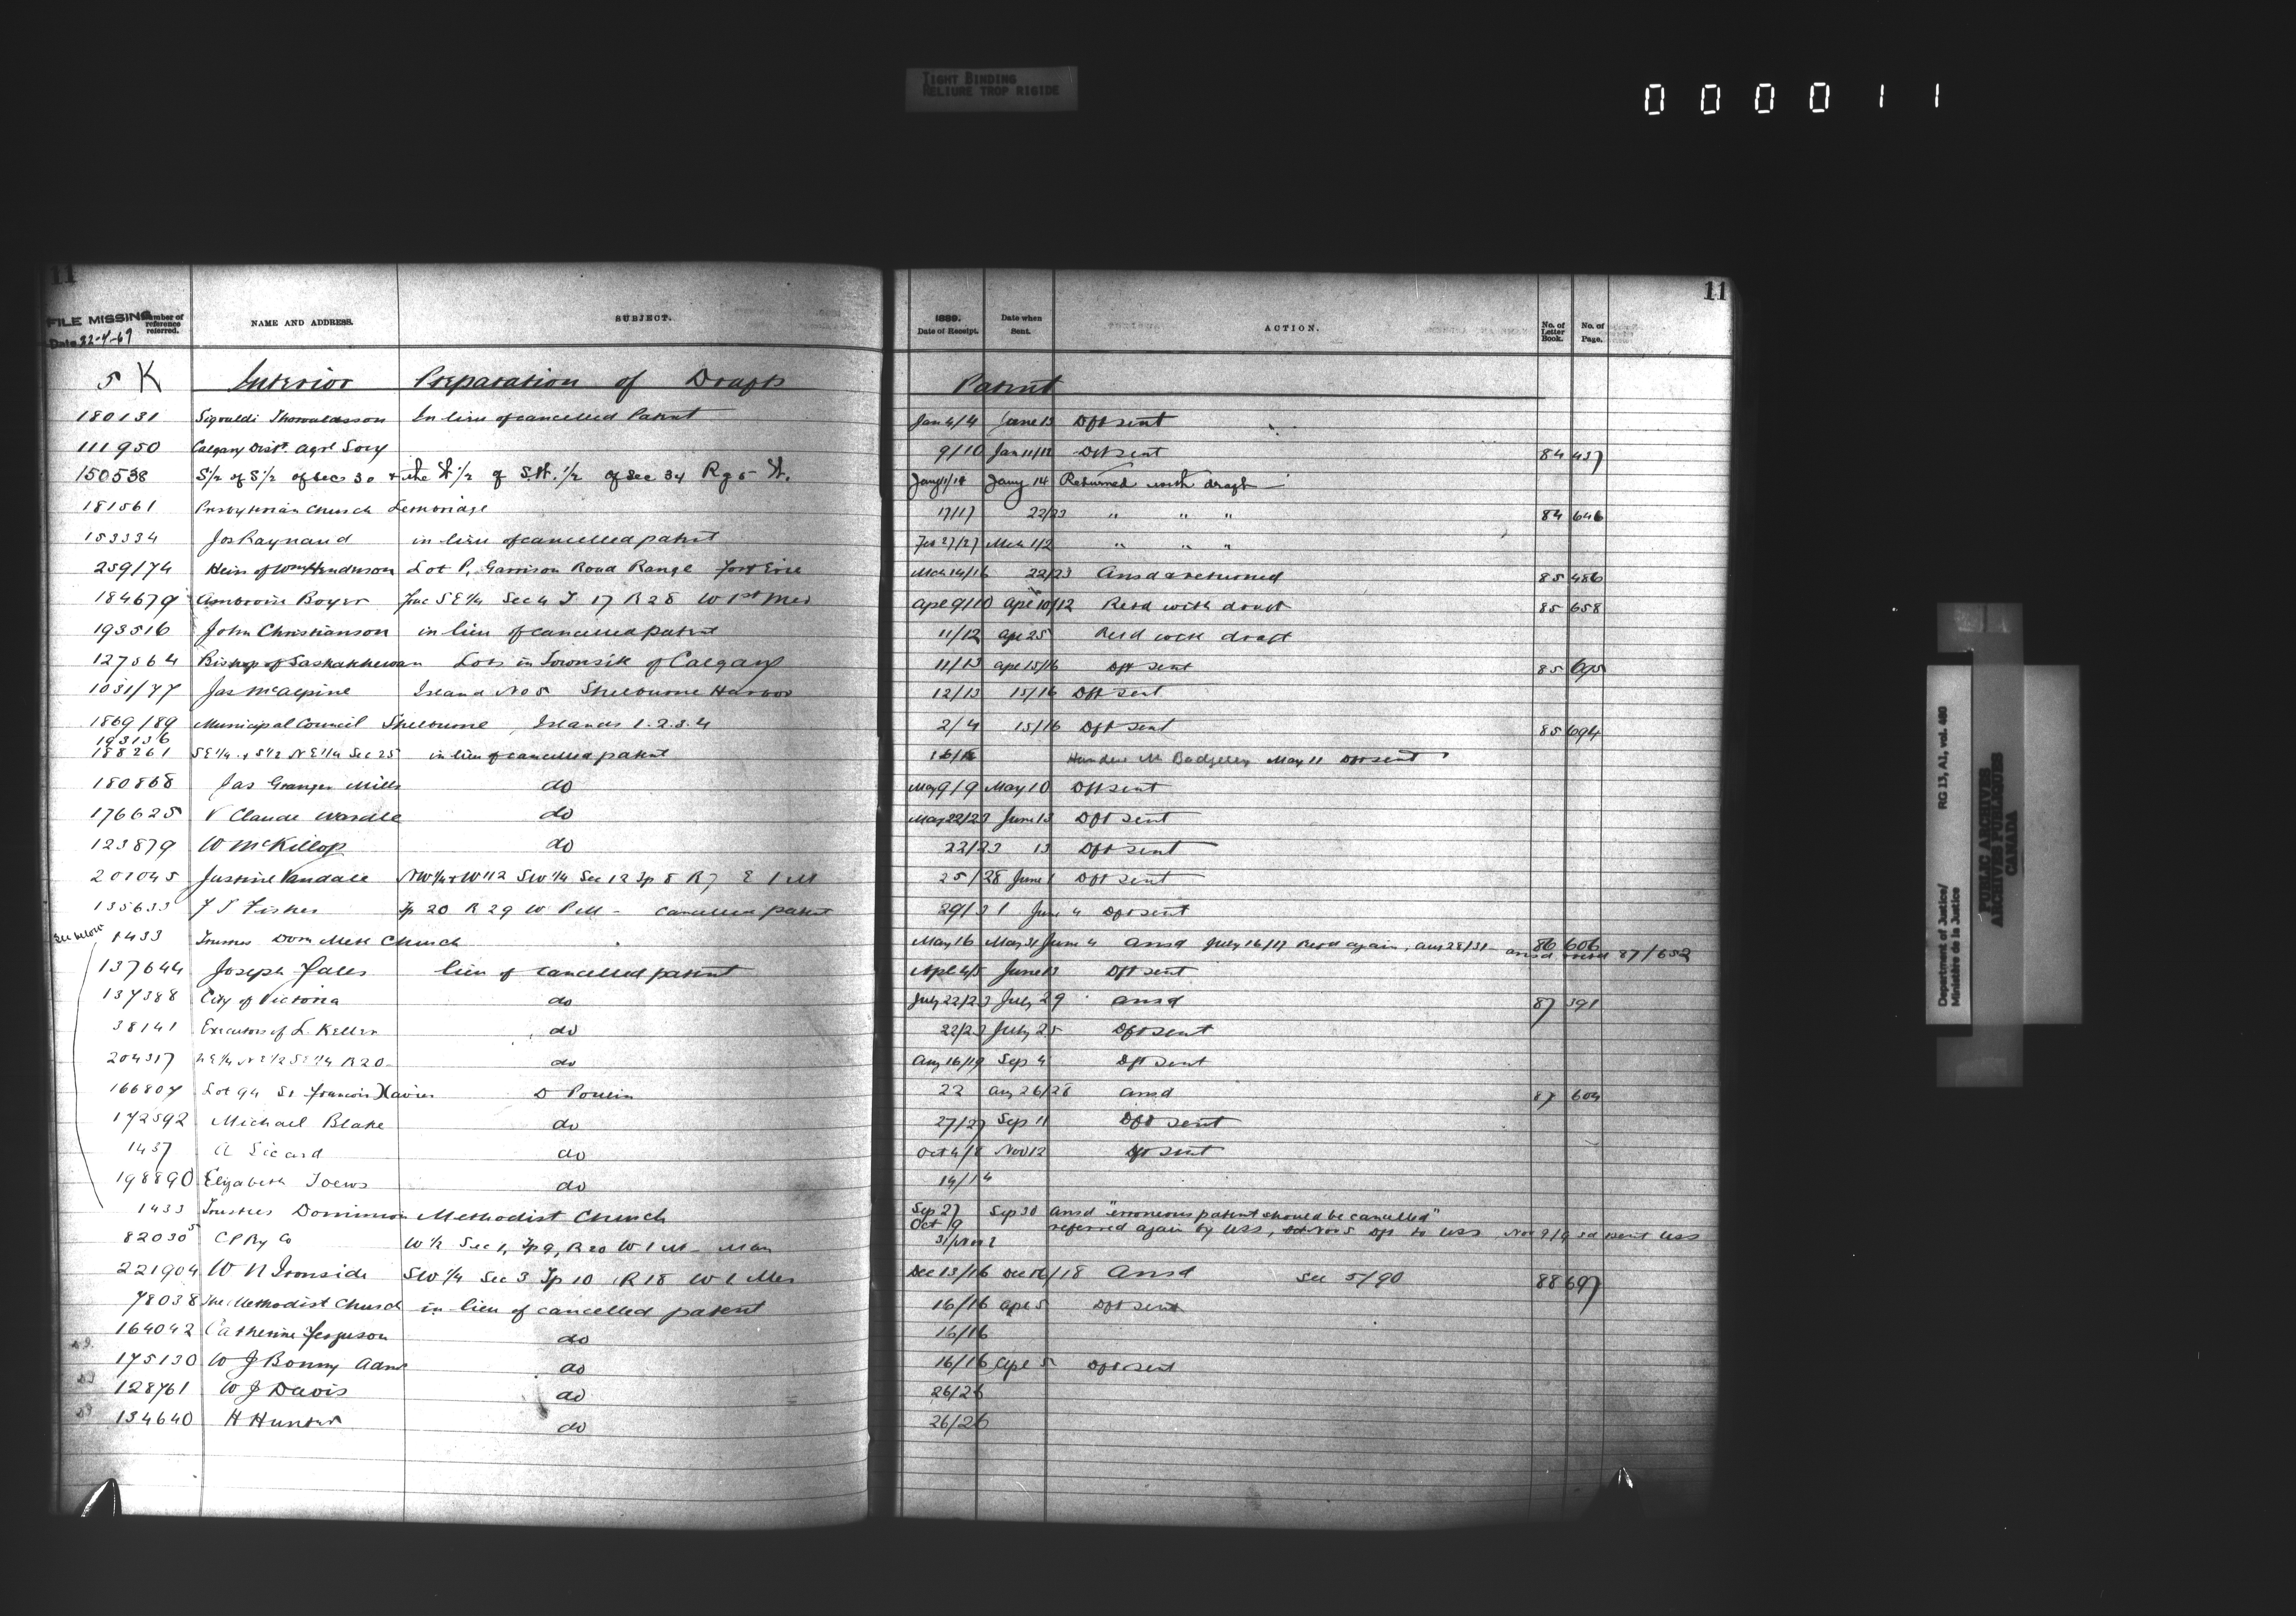 TIGHT BINDING
RELIURE TROP RIGIDE
0 0 0 0 1 1
11
11
FILE MISSING
Date 22-4-69
Number of reference referred.
NAME AND ADDRESS.
SUBJECT.
1889.
Date of Receipt.
Date when Sent.
ACTION.
No. of Letter Book.
No. of Page.
5 K Interior Preparation of Drafts Patent
180131 Sigvaldi Thorvaldsson In lieu of cancelled Patent Jan 4/4 June 13 Dft sent
111950 Calgary Dist. Agrl Socy 9/10 Jan 11/12 Dft sent 84 437
150538 S/2 of S1/2 of Sec 30 & the W 1/2 of SW. 1/2 of Sec 34 Rg 5 W. Jany 11/14 Jany 14 Returned with draft
181561 Presbyterian Church 17/17 22/23 " " " 84 646
153334 Jos Raynaud in lieu of cancelled patent Feb 27/27 Mch 1/2 " " "
259/74 Heirs of Wm Henderson Lot P, Garrison Road Range Fort Erie Mch 14/16 22/23 Ansd & returned 85 486
184679 Ambroise Boyer Frac SE 1/4 Sec 4 T 17 R 28 W 1st Mer Apl 9/10 Apl 10/12 Retd with draft 85 658
193516 John Christianson in lieu of cancelled patent 11/12 Apl 25 Retd with draft
127564 Bishop of Saskatchewan Lots in Townsite of Calgary 11/13 Apl 15/16 Dft sent 85 695
1031/77 Jas McAlpine Island No 5 Shelbourne Harbor 12/13 15/16 Dft sent
1869/89 Municipal Council Shelbourne Islands 1.2.3.4 2/4 15/16 Dft sent 85 694
193136
188261 SE 1/4 & S 1/2 NE 1/4 Sec 25 in lieu of cancelled patent 16/16 May 11 Dft sent
180868 Jas Granger Mills do May 9/9 May 10 Dft sent
176625 V Claude Wardle do May 22/23 June 13 Dft sent
123879 W McKillop do 22/23 13 Dft sent
201045 Justine Vandale NW 1/4 & W 1/2 SW 1/4 Sec 12 Tp 8 R 7 E 1 M 25/28 June 1 Dft sent
135633 Tp 20 R 29 W P M - cancelled patent 29/31 June 4 Dft sent
See below 1433 Trustees Dom Meth Church May 16 May 31 June 4 Ansd July 16/17 Retd again, Aug 28/31 86 606 ansd 87/652
137644 Joseph Fales lieu of cancelled patent Apl 4/5 June 13 Dft sent
137388 City of Victoria do July 22/23 July 29 Ansd 87 391
38141 Executors of L. Keller do 22/23 July 25 Dft sent
204317 do Aug 16/19 Sep 4 Dft sent
166807 Lot 94 St Francois Xavier D Poulin 22 Aug 26/28 Ansd 87 604
172592 Michael Blake do 27/27 Sep 11 Dft sent
1437 A Sicard do Oct 4/8 Nov 12 Dft sent
198890 Elizabeth Toews do 14/14
1433 Trustees Dominion Methodist Church Sep 27 Sep 30 Ansd "erroneous patent should be cancelled"
Oct 9 referred again by USS,
82030 C P Ry Co W 1/2 Sec 1, Tp 9, R 20 W 1 M - Man 31/Nov 2
221904 W N Ironside SW 1/4 Sec 3 Tp 10 R 18 W 1 Mer Dec 13/16 Dec 16/18 Ansd See 5/90 88 697
78038 The Methodist Church in lieu of cancelled patent 16/16 Apl 5 Dft sent
164042 Catherine Ferguson do 16/16
175130 W J Bonny Adms do 16/16 Apl 5 Dft sent
128761 W J Davis do 26/26
134640 H Hunter do 26/26
Department of Justice/ RG 13, A1, vol. 460
Ministère de la Justice
PUBLIC ARCHIVES
ARCHIVES PUBLIQUES
CANADA